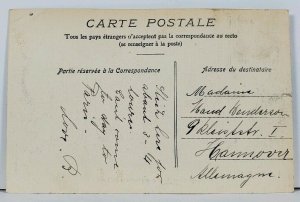 CARTE POSTALE
Tous les pays étrangers n'acceptent pas la correspondance au recto
(se renseigner à la poste)
Partie réservée à la Correspondance
Adresse du destinataire
here for
about 3-4
hours
Love B
Madame
Maud Henderson
I
Hannover
Allemagne.